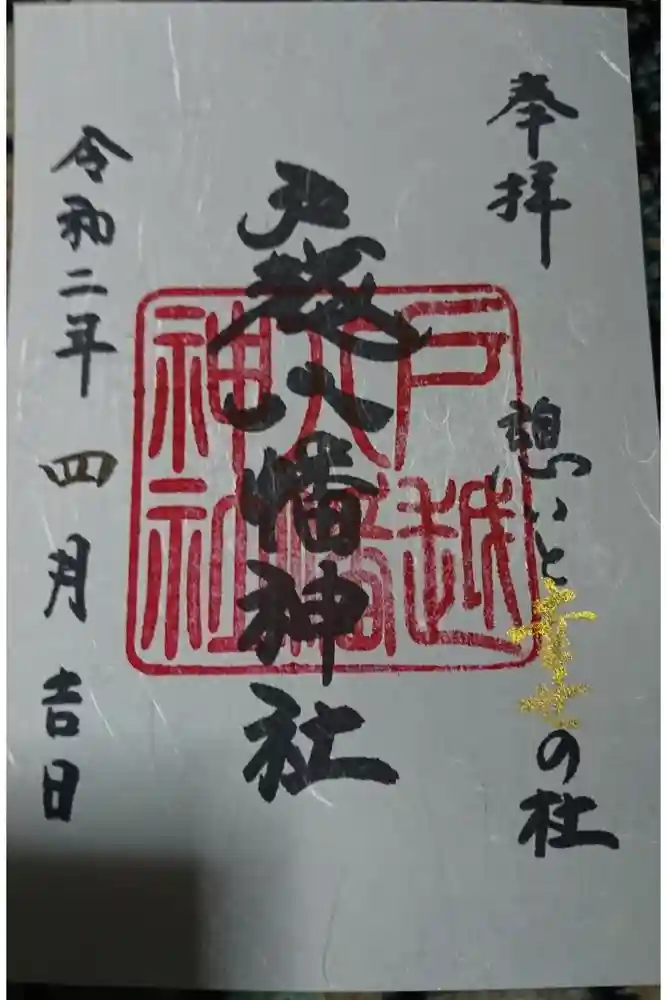 奉拝
憩いと幸の杜
戸越八幡神社
戸越八幡神社
令和二年四月吉日